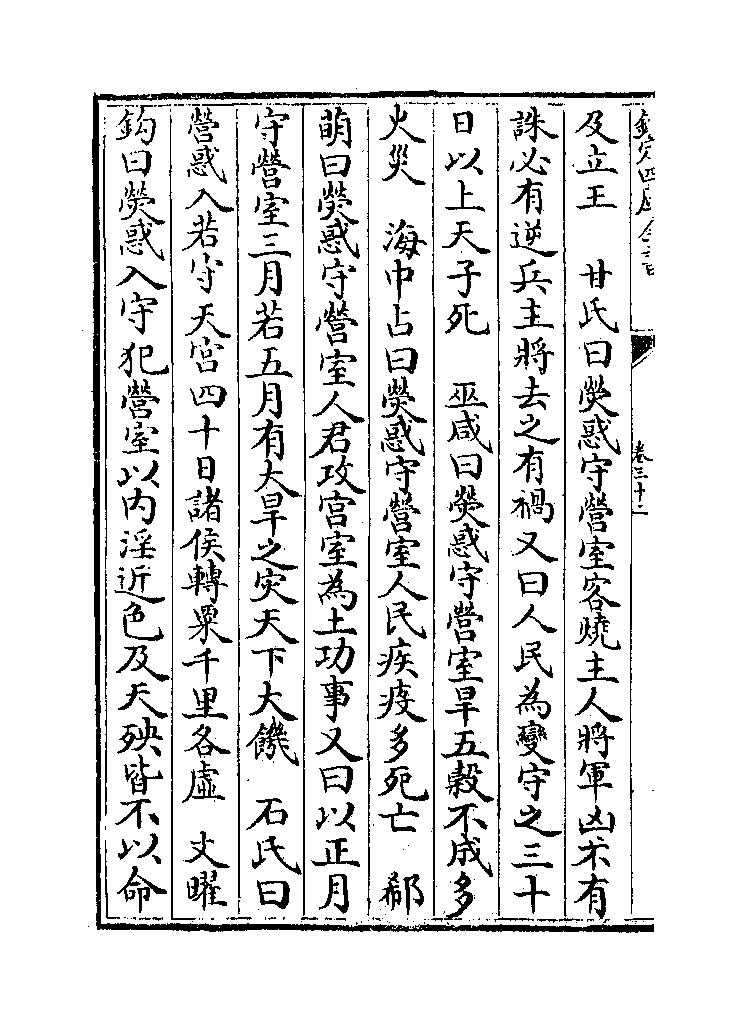 欽定四庫全書
卷三十二
及立王　甘氏曰熒惑守營室客燒主人將軍凶不有
誅必有逆兵主將去之有禍又曰人民為變守之三十
日以上天子死　巫咸曰熒惑守營室旱五榖不成多
火災　海中占曰熒惑守營室人民疾疫多死亡　郗
萌曰熒惑守營室人君攻宫室為土功事又曰以正月
守營室三月若五月有大旱之灾天下大饑　石氏曰
營惑入若守天宫四十日諸侯轉粟千里各虛　文曜
鈎曰熒惑入守犯營室以内淫近色及天殃皆不以命